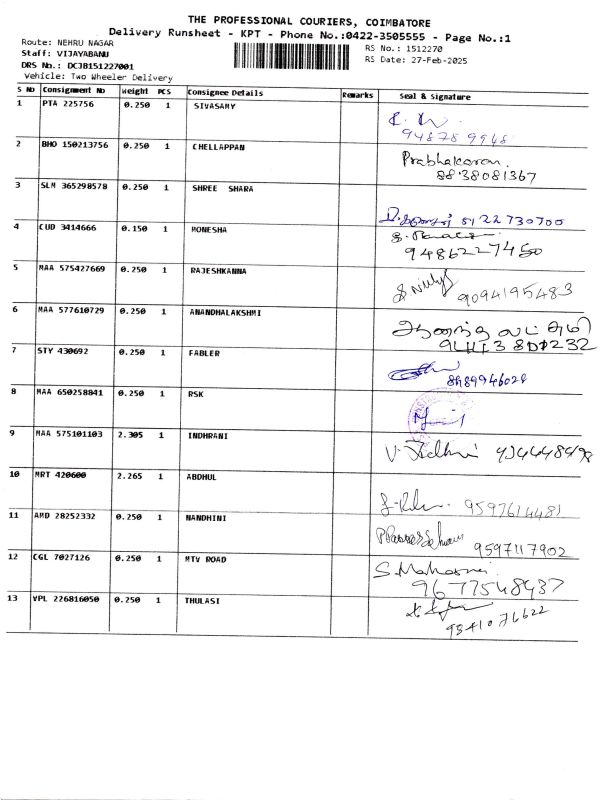 THE PROFESSIONAL COURIERS, COIMBATORE
Delivery Runsheet - KPT - Phone No.:0422-3505555 - Page No.:1
Route: NEHRU NAGAR
Staff: VIJAYABANU
DRS No.: DCJB151227001
Vehicle: Two Wheeler Delivery
RS No.: 1512270
RS Date: 27-Feb-2025
S No Consignment No Weight PCS Consignee Details Remarks Seal & Signature
1 PTA 225756 0.250 1 SIVASAMY
2 BHO 150213756 0.250 1 CHELLAPPAN Prabhakaran.
8838081367
3 SLM 365298578 0.250 1 SHREE SHARA
8122730700
4 CUD 3414666 0.150 1 MONESHA
9486227450
5 MAA 575427669 0.250 1 RAJESHKANNA
9094195483
6 MAA 577610729 0.250 1 ANANDHALAKSHMI ஆனந்த லட்சுமி
7 STY 430692 0.250 1 FABLER
8 MAA 650258841 0.250 1 RSK
9 MAA 575101103 2.305 1 INDHRANI
10 MRT 420600 2.265 1 ABDHUL
9597614481
11 AMD 28252332 0.250 1 NANDHINI
9597117902
12 CGL 7027126 0.250 1 MTV ROAD
9677548437
13 VPL 226816050 0.250 1 THULASI
9841076622